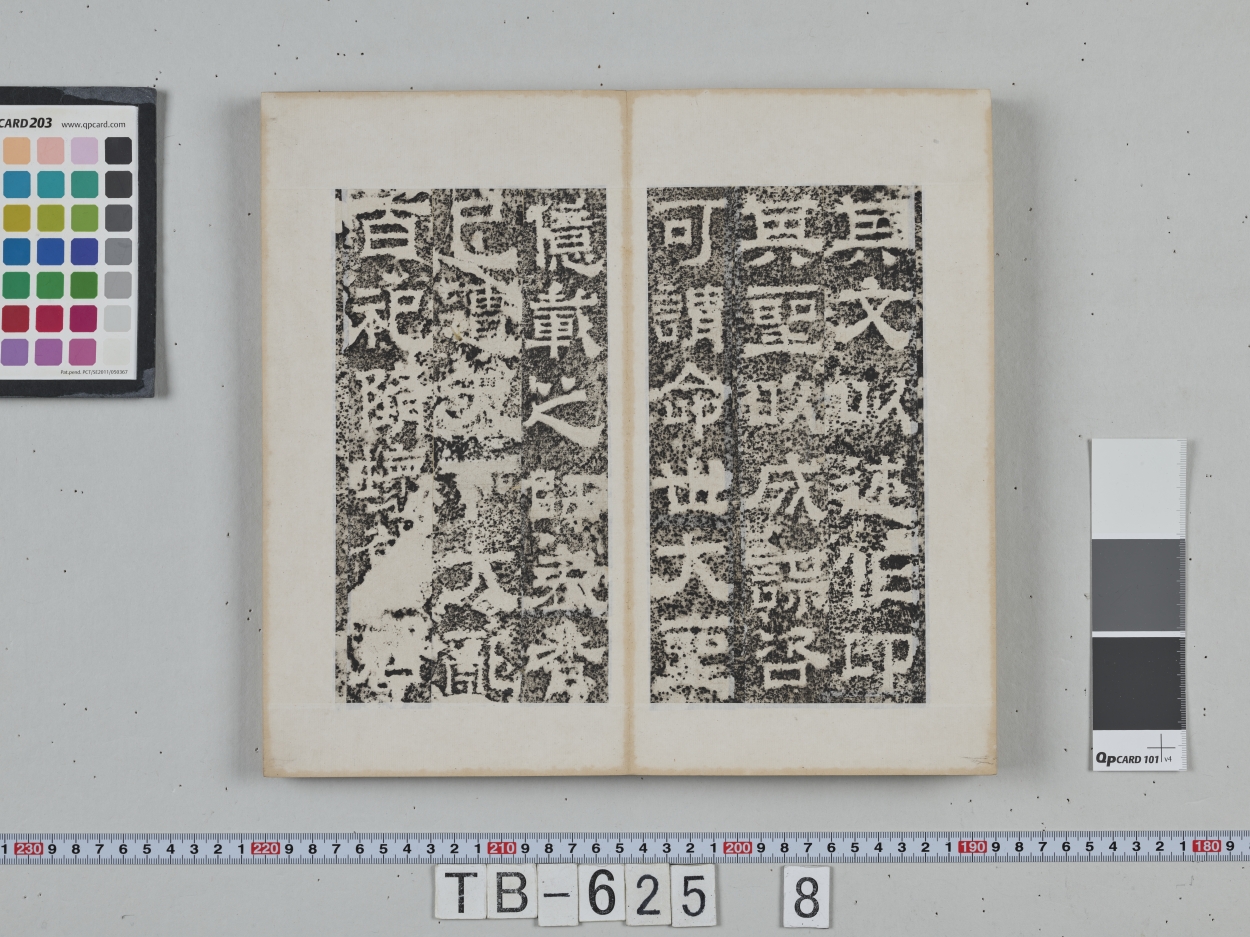 其文㕥述作卬
其聖㕥成謀咨
可謂命世大聖
億載之師表者
已遭天下大亂
百祀墮壞居
CARD203 www.qpcard.com
Pat.pend. PCT/SE2011/050367
QpCARD 101 v4
1 230 9 8 7 6 5 4 3 2 1 220 9 8 7 6 5 4 3 2 1 210 9 8 7 6 5 4 3 2 1 200 9 8 7 6 5 4 3 2 1 190 9 8 7 6 5 4 3 2 1 180 9
TB-625 8